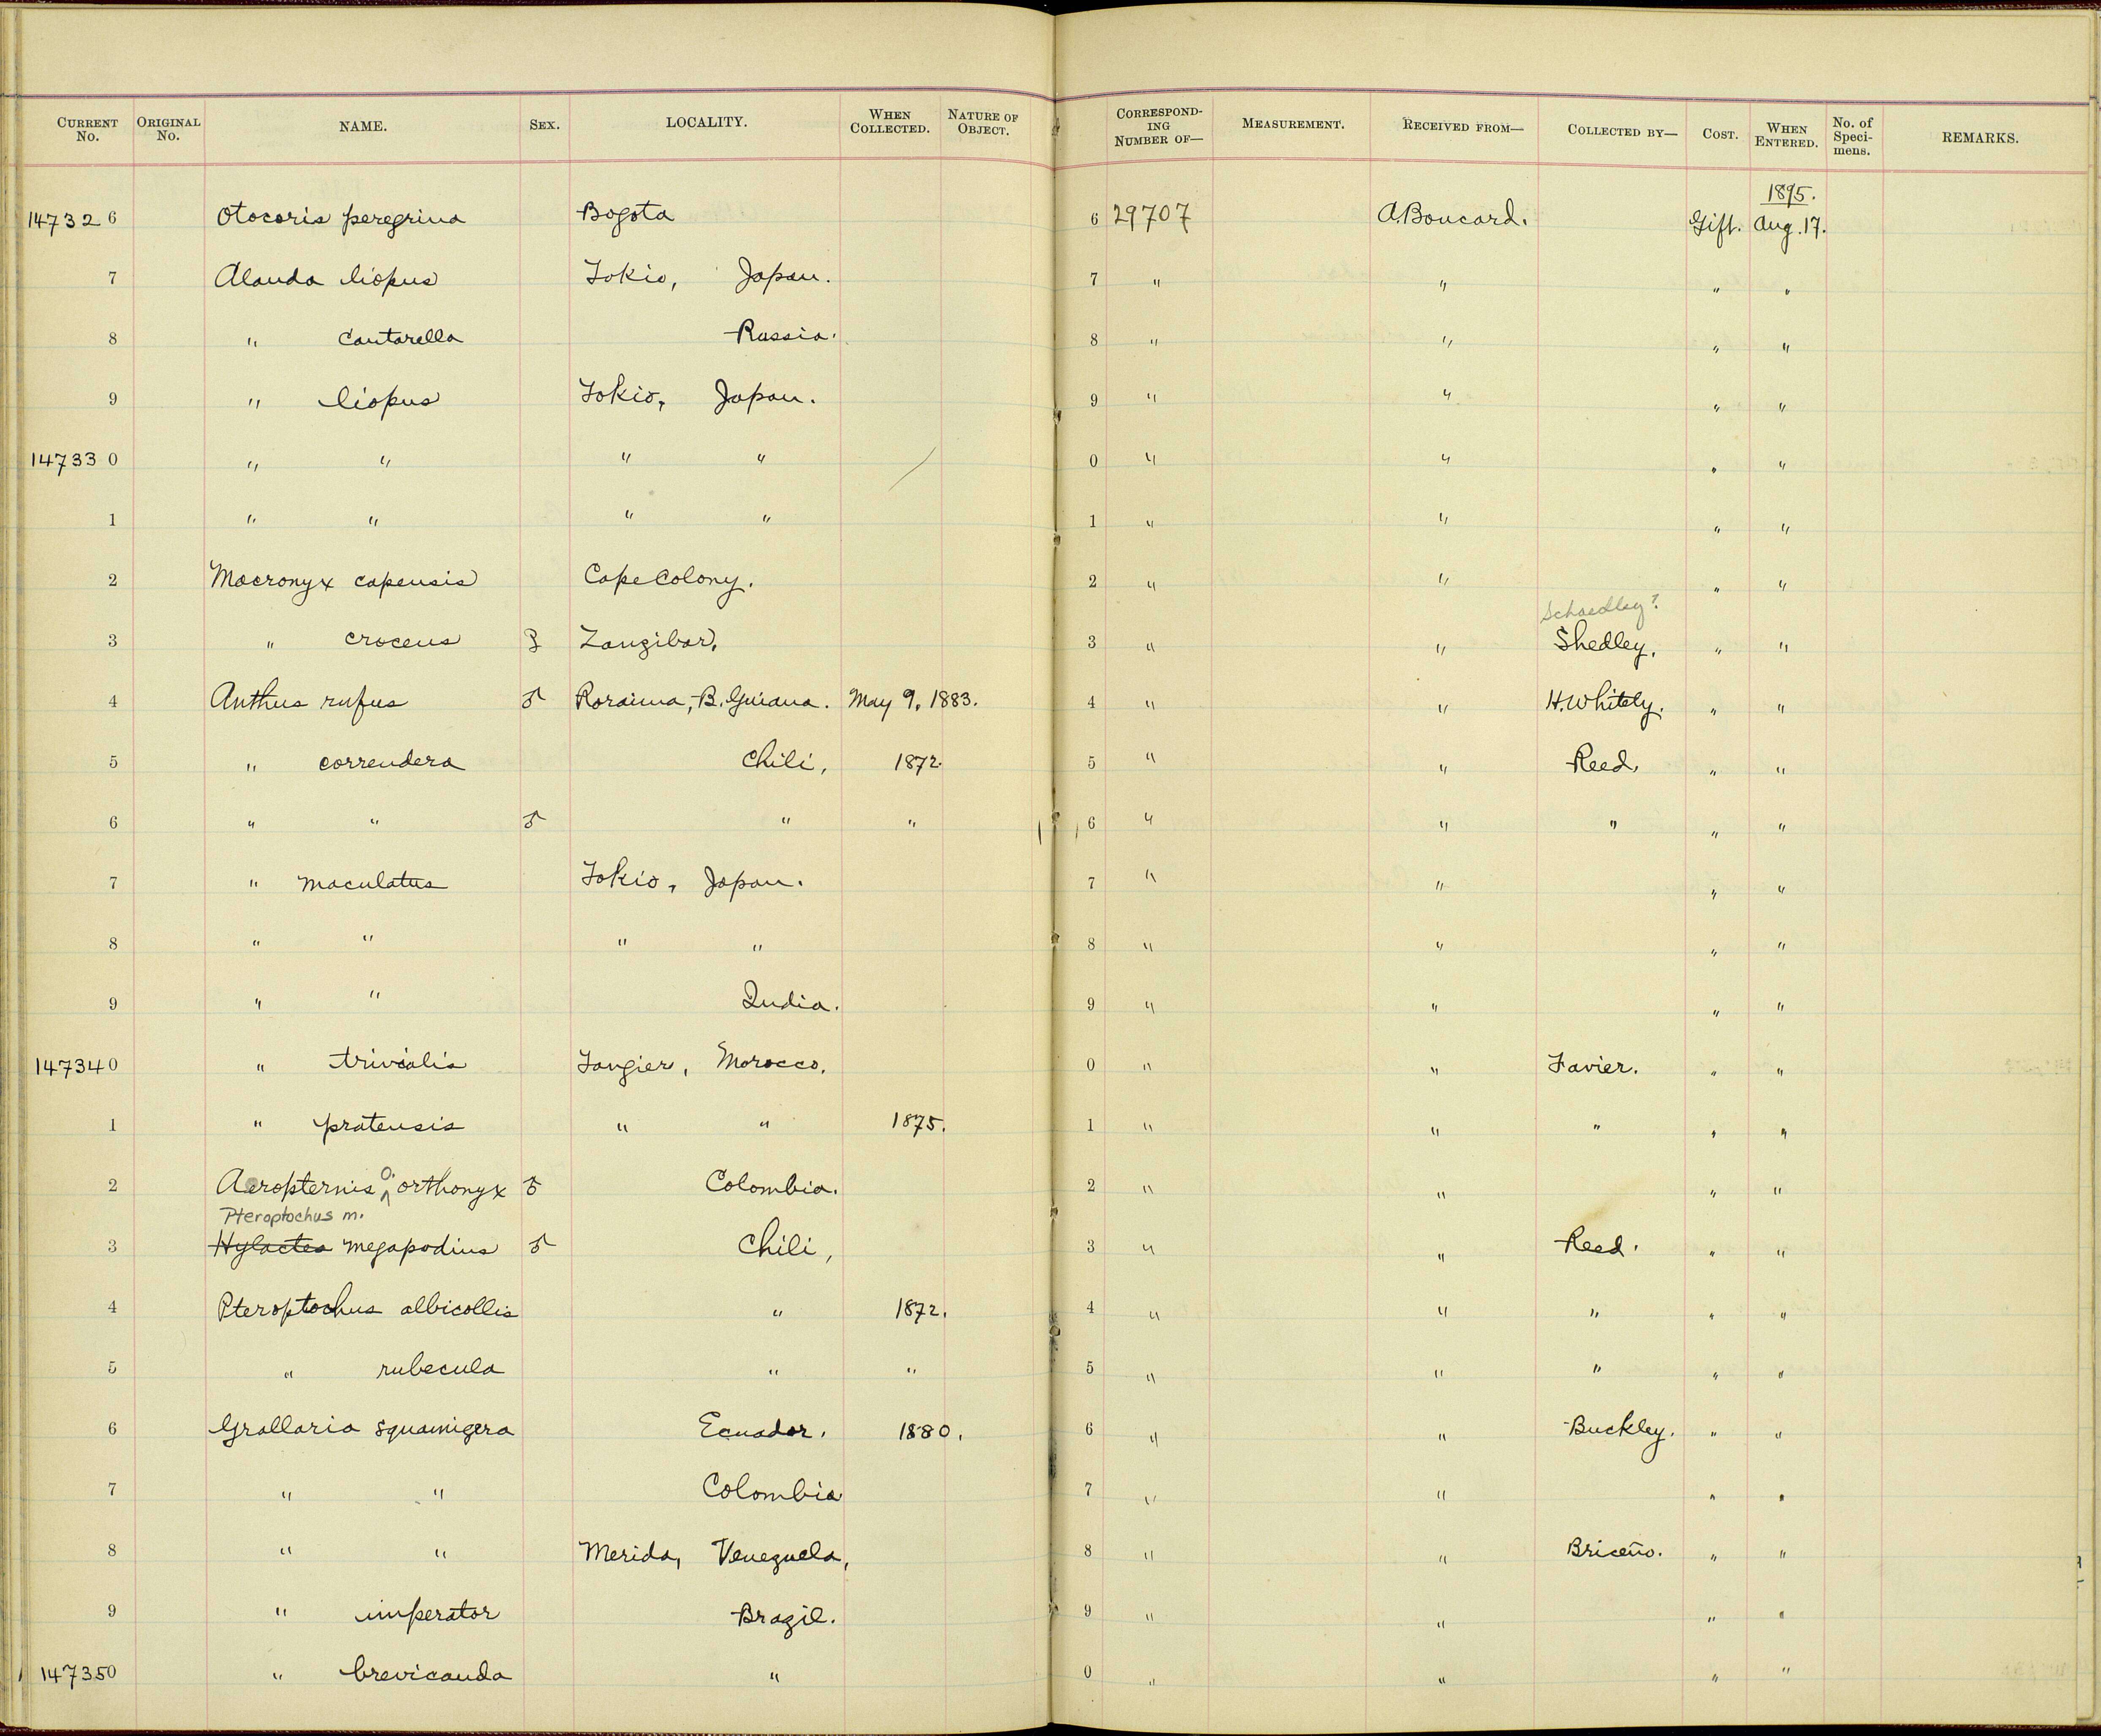 CURRENT No. ORIGINAL No. NAME. SEX. LOCALITY. WHEN COLLECTED. NATURE OF OBJECT. CORRESPONDING NUMBER OF— MEASUREMENT. RECEIVED FROM— COLLECTED BY— COST. WHEN ENTERED. No. of Specimens. REMARKS.
1895.
147326 Otocoris peregrina Bogota 6 29707 A. Boucard. Gift. Aug. 17.
7 Alauda liopus Tokio, Japan. 7 " " " "
8 " cantarella Russia. 8 " " " "
9 " liopus Tokio, Japan. 9 " " " "
147330 " " " " 0 " " " "
1 " " " " 1 " " " "
2 Macronyx capensis Cape Colony. 2 " " " "
Schaedley?
3 " croceus ♀ Zanzibar. 3 " " Shedley. " "
4 Anthus rufus ♂ Roraima, B. Guiana. May 9, 1883. 4 " " H. Whitely. " "
5 " correndera Chili, 1872. 5 " " Reed. " "
6 " " ♂ " " 6 " " " " "
7 " maculatus Tokio, Japan. 7 " " " "
8 " " " " 8 " " " "
9 " " India. 9 " " " "
147340 " trivialis Tangier, Morocco. 0 " " Favier. " "
1 " pratensis " " 1875. 1 " " " " "
2 Acropternis o. orthonyx ♂ Colombia. 2 " " " "
Pteroptochus m.
3 Hylactes megapodius ♂ Chili, 3 " " Reed. " "
4 Pteroptochus albicollis " 1872. 4 " " " " "
5 " rubecula " " 5 " " " " "
6 Grallaria squamigera Ecuador. 1880. 6 " " Buckley. " "
7 " " Colombia 7 " " " "
8 " " Merida, Venezuela, 8 " " Briceño. " "
9 " imperator Brazil. 9 " " " "
147350 " brevicauda " 0 " " " "